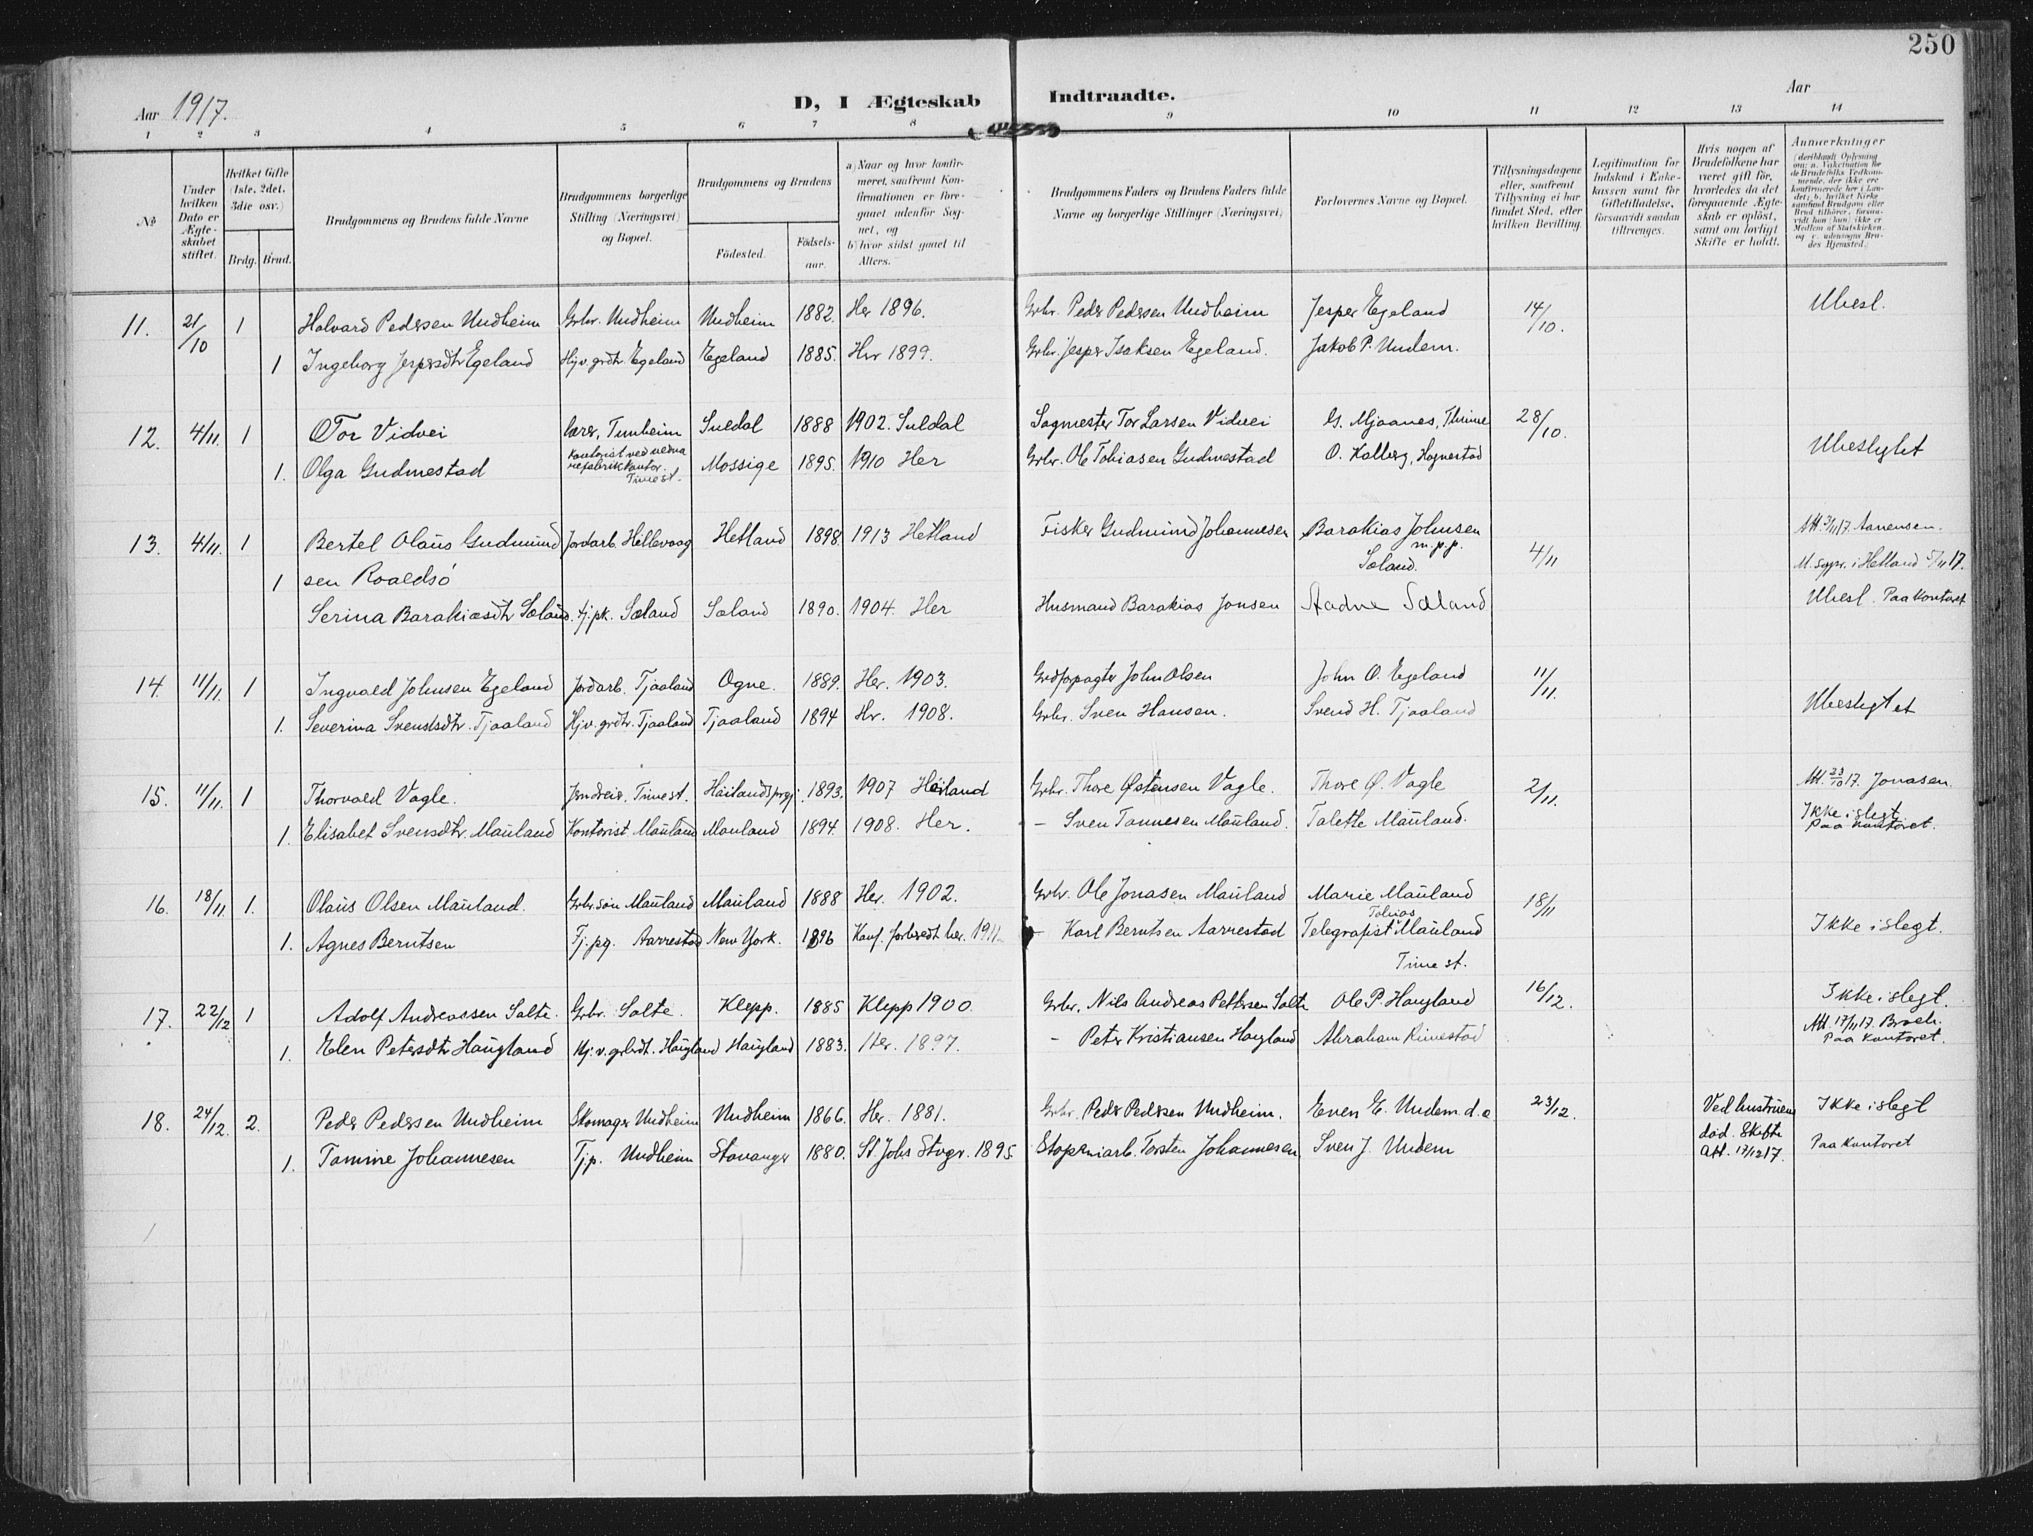 250
Aar 1917.
D, I Ægteskab Indtraadte.
Aar
1 2 3 4 5 6 7 8 9 10 11 12 13 14
№
Under hvilken Dato er Ægteskabet stiftet.
Hvilket Gifte (1ste, 2det, 3die osv.)
Brdg. Brud.
Brudgommens og Brudens fulde Navne
Brudgommens borgerlige Stilling (Næringsvei) og Bopæl.
Brudgommens og Brudens
Fødested.
Fødselsaar.
a) Naar og hvor konfirmeret, saafremt Konfirmationen er foregaaet udenfor Sognet, og
b) hvor sidst gaaet til Alters.
Brudgommens Faders og Brudens Faders fulde Navne og borgerlige Stillinger (Næringsvei)
Forlovernes Navne og Bopæl.
Tillysningsdagene eller, saafremt Tillysning ei har fundet Sted, efter hvilken Bevilling.
Legitimation for Indskud i Enkekassen samt for Giftetilladelse, forsaavidt saadan tiltrænges.
Hvis nogen af Brudefolkene har været gift før, hvorledes da det foregaaende Ægteskab er opløst, samt om lovligt Skifte er holdt.
Anmærkninger
11. 21/10 1 Halvard Pedersen Undheim Grbr. Undheim Undheim 1882. Her 1896. Grbr. Peder Pedersen Undheim Jesper Egeland 14/10. Ubesl.
1 Ingeborg Jespersdtr Egeland Hjv. grdtr. Egeland Egeland 1885. Her 1899. Grbr. Jesper Isaksen Egeland. Jakob P. Undem.
12. 4/11. 1 Tor Vidvei Lærer, Tunheim Suldal 1888 1902. Suldal Sagmester Tor Larsen Vidvei G. Mjaanes, Thime 28/10. Ubeslegtet
1. Olga Gudmestad Kontorist ved Time st. Mossige 1895. 1910 Her Grbr. Ole Tobiasen Gudmestad O. Kalberg, Hognestad
13. 4/11. 1 Bertel Olaus Gudmund Jordarb. Hillevaag Hetland 1898. 1913 Hetland Fisker Gudmund Johannesen Barakias Johnsen m.p.p. Sæland. 4/11 Att. 3/11 17. Aanensen.
1 sen Roaldsø M. sogpr. i Hetland 5/11 17.
Serina Barakiasdtr Sæland. Tj.pk. Sæland Sæland 1890. 1904. Her Husmand Barakias Jonsen Aadne Sæland Ubesl. Paa kontoret
14. 11/11. 1 Ingvald Johnsen Egeland Jordarb. Tjaaland Ogne. 1889. Her. 1903. Grdforpagter John Olsen John O. Egeland 11/11. Ubeslegtet
1. Severina Svendsdtr. Tjaaland Hjv. grdtr. Tjaaland Tjaaland 1894 Her. 1908. Grbr. Sven Hansen. Svend H. Tjaaland
15. 11/11. 1 Thorvald Vagle. Time st. Høilands prgj. 1893. 1907 Høiland Grbr. Thore Østensen Vagle. Thore Ø. Vagle 2/11. Att. 23/10 17. Jonasen.
1. Elisabet Svensdtr. Mauland Kontorist Mauland Mauland 1894. 1908. Her. - Sven Tønnesen Mauland. Talette Mauland. Ikke i slegt Paa kontoret.
16. 18/11. 1. Olaus Olsen Mauland. Grbr. søn Mauland Mauland 1888 Her. 1902. Grbr. Ole Jonasen Mauland Marie Mauland 18/11
1. Agnes Berntsen Tj. pg. Aarrestad New York. 1896 Konf. forberedt her. 1911. - Karl Berntsen Aarrestad Telegrafist Tobias Mauland Time st. Ikke i slegt.
17. 22/12 1 Adolf Andreassen Salte. Grbr. Salte. Klepp. 1885 Klepp 1900. Grbr. Nils Andreas Pettersen Salte Ole P. Haugland 16/12. Ikke i slegt.
1. Elen Petersdtr Haugland Hj. v. grbrdt. Haugland Haugland 1883. Her. 1897. - Peter Kristiansen Haugland Abraham Rimestad Att. 17/11 17. Broch. Paa kontoret.
18. 24/12. 2. Peder Pedersen Undheim Skomager Undheim Undheim 1866. Her. 1881. Grbr. Peder Pedersen Undheim. Even E. Undem d.e 23/12. Ved hustruens død. Skifte att. 17/12 17. Ikke i slegt
1. Tomine Johannesen Tj.p. Undheim Stavanger 1880. St. Johs Stvgr. 1895. Støperiarb. Torsten Johannesen Sven J. Undem Paa kontoret